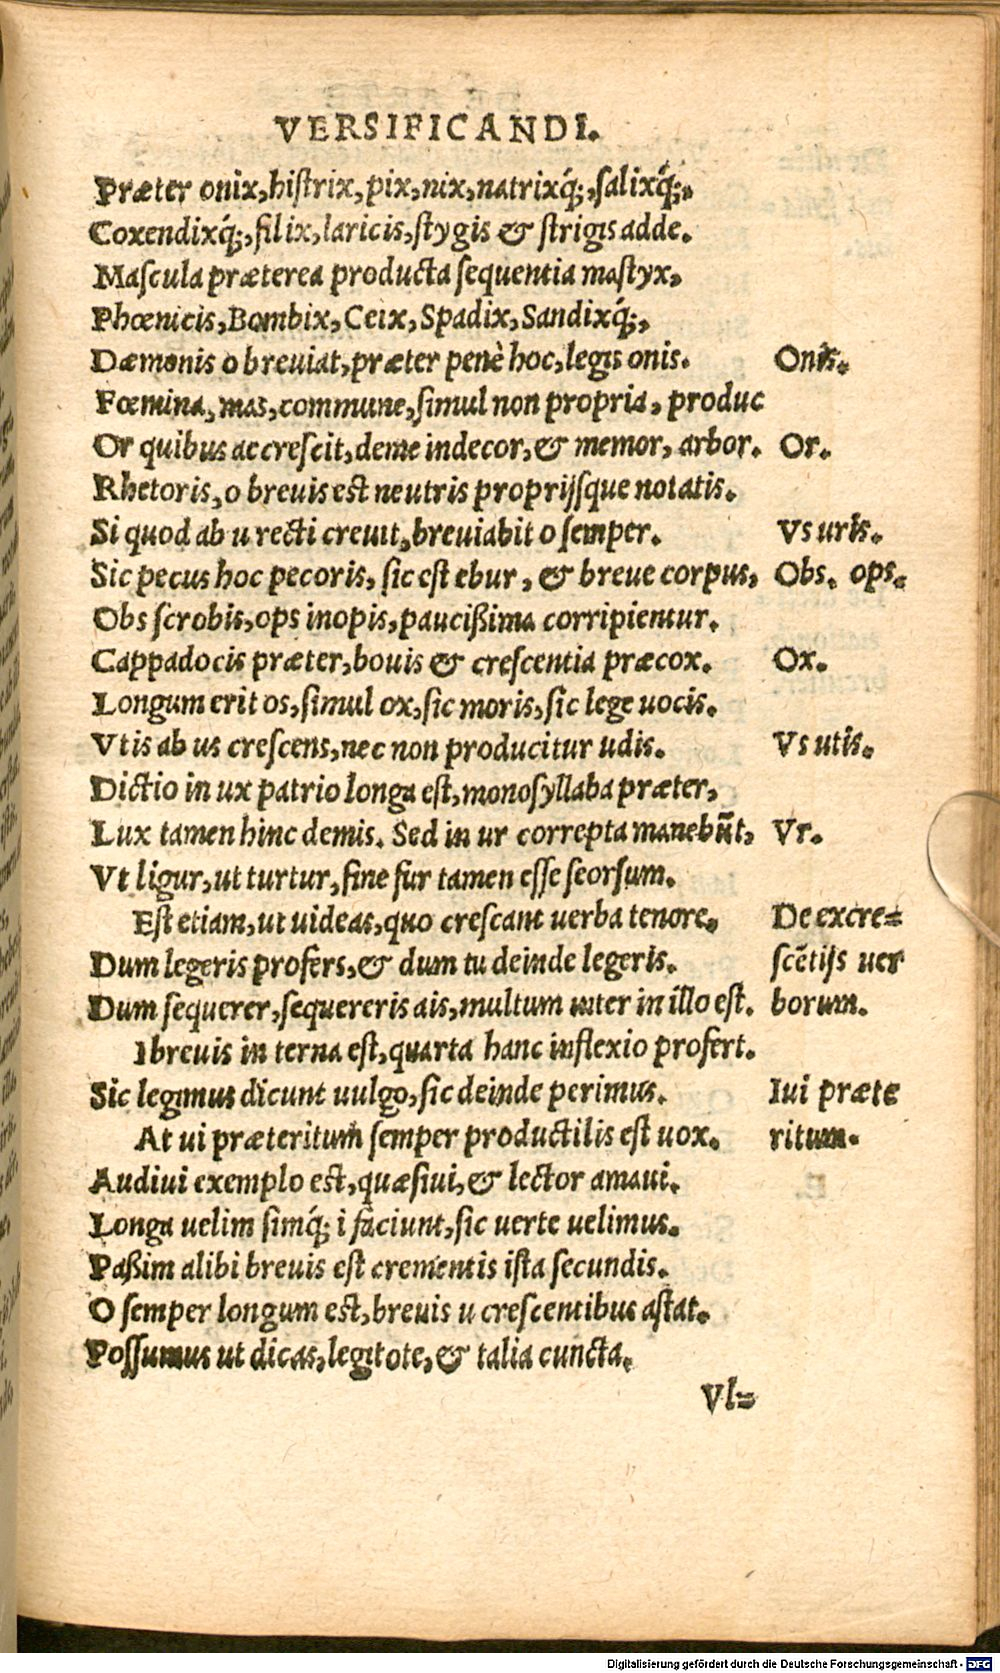 VERSIFICANDI.
Præter onix, histrix, pix, nix, natrixq́;, salixq́;,
Coxendixq́;, filix, laricis, stygis & strigis adde.
Mascula præterea producta sequentia mastyx,
Phœnicis, Bombix, Ceix, Spadix, Sandixq́;,
Dæmonis o breviat, præter penè hoc, legis onis. Onis.
Fœmina, mas, commune, simul non propria, produc
Or quibus accrescit, deme indecor, & memor, arbor. Or.
Rhetoris, o brevis est neutris proprijsque notatis.
Si quod ab u recti crevit, breviabit o semper. Vs uris.
Sic pecus hoc pecoris, sic est ebur, & breve corpus, Obs. ops.
Obs scrobis, ops inopis, paucißima corripientur.
Cappadocis præter, bouis & crescentia præcox. Ox.
Longum erit os, simul ox, sic moris, sic lege uocis.
Vtis ab us crescens, nec non producitur udis. Vs utis.
Dictio in ux patrio longa est, monosyllaba præter,
Lux tamen hinc demis. Sed in ur correpta manebūt, Vr.
Vt ligur, ut turtur, sine fur tamen esse seorsum.
Est etiam, ut uideas, quo crescant uerba tenore, De excre=
Dum legeris profers, & dum tu deinde legeris. scētijs uer
Dum sequerer, sequereris ais, multum inter in illo est. borum.
I brevis in terna est, quarta hanc inflexio profert.
Sic legimus dicunt uulgo, sic deinde perimus. Iui præte
At ui præteritum semper productilis est uox. ritum.
Audivi exemplo est, quæsivi, & lector amaui.
Longa uelim simq́; i faciunt, sic uerte uelimus.
Paßim alibi brevis est crementis ista secundis.
O semper longum est, brevis u crescentibus astat.
Possumus ut dicas, legitote, & talia cuncta.
Vl=
Digitalisierung gefördert durch die Deutsche Forschungsgemeinschaft - DFG